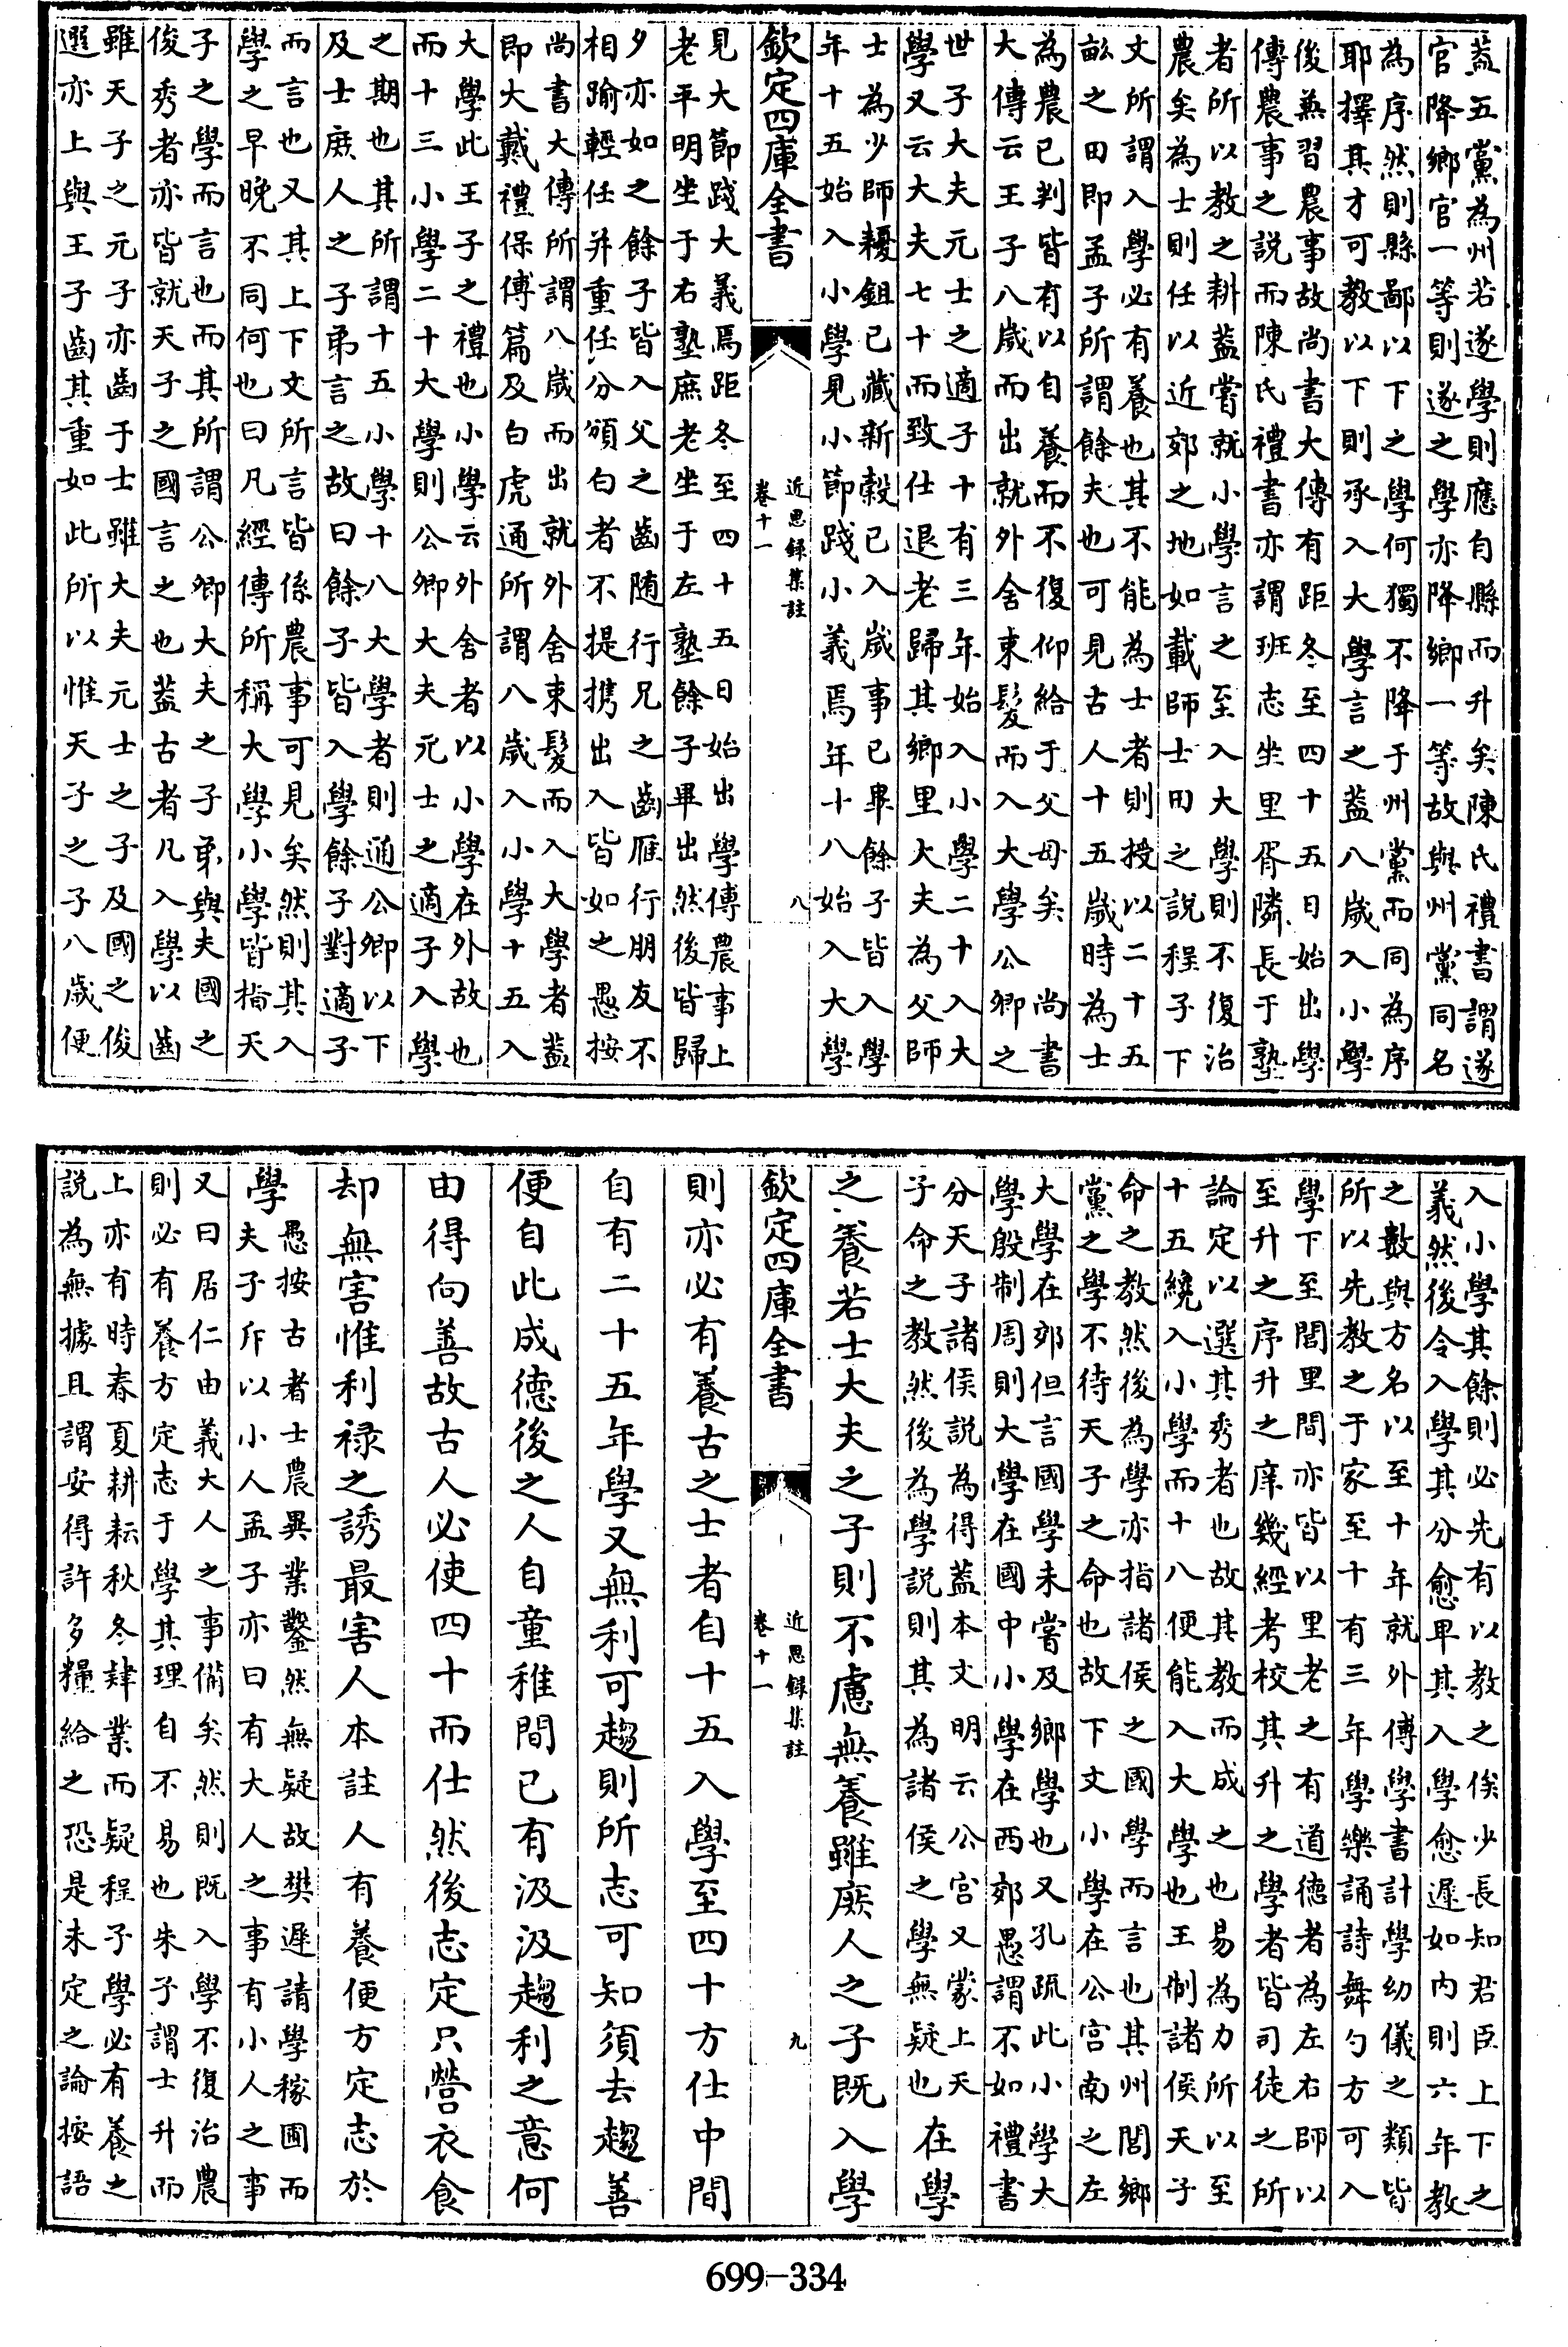 葢五黨為州若遂學則應自縣而升矣陳氏禮書謂遂
官降鄉官一等則遂之學亦降鄉一等故與州黨同名
為序然則縣鄙以下之學何獨不降于州黨而同為序
耶擇其才可教以下則承入大學言之葢八歲入小學
後兼習農事故尚書大傳有距冬至四十五日始出學
傳農事之說而陳氏禮書亦謂班志坐里胥隣長于塾
者所以教之耕葢嘗就小學言之至入大學則不復治
農矣為士則任以近郊之地如載師士田之說程子下
文所謂入學必有養也其不能為士者則授以二十五
畝之田即孟子所謂餘夫也可見古人十五歲時為士
為農已判皆有以自養而不復仰給于父母矣　尚書
大傳云王子八歲而出就外舍束髮而入大學公卿之
世子大夫元士之適子十有三年始入小學二十入大
學又云大夫七十而致仕退老歸其鄉里大夫為父師
士為少師耰鉏已藏新穀已入歲事已畢餘子皆入學
年十五始入小學見小節踐小義焉年十八始入大學
欽定四庫全書
近思録集註
卷十一
八
見大節踐大義焉距冬至四十五日始出學傳農事上
老平明坐于右塾庶老坐于左塾餘子畢出然後皆歸
夕亦如之餘子皆入父之齒随行兄之齒雁行朋友不
相踰輕任并重任分頒白者不提携出入皆如之愚按
尚書大傳所謂八歲而出就外舍束髮而入大學者葢
即大戴禮保傅篇及白虎通所謂八歲入小學十五入
大學此王子之禮也小學云外舍者以小學在外故也
而十三小學二十大學則公卿大夫元士之適子入學
之期也其所謂十五小學十八大學者則通公卿以下
及士庶人之子弟言之故曰餘子皆入學餘子對適子
而言也又其上下文所言皆係農事可見矣然則其入
學之早晚不同何也曰凡經傳所稱大學小學皆指天
子之學而言也而其所謂公卿大夫之子弟與夫國之
俊秀者亦皆就天子之國言之也葢古者凡入學以齒
雖天子之元子亦齒于士雖大夫元士之子及國之俊
選亦上與王子齒其重如此所以惟天子之子八歲便
入小學其餘則必先有以教之俟少長知君臣上下之
義然後令入學其分愈卑其入學愈遲如内則六年教
之數與方名以至十年就外傅學書計學幼儀之類皆
所以先教之于家至十有三年學樂誦詩舞勺方可入
學下至閭里間亦皆以里老之有道德者為左右師以
至升之序升之庠幾經考校其升之學者皆司徒之所
論定以選其秀者也故其教而成之也易為力所以至
十五纔入小學而十八便能入大學也王制諸侯天子
命之教然後為學亦指諸侯之國學而言也其州閭鄉
黨之學不待天子之命也故下文小學在公宫南之左
大學在郊但言國學未嘗及鄉學也又孔疏此小學大
學殷制周則大學在國中小學在西郊愚謂不如禮書
分天子諸侯說為得葢本文明云公宫又蒙上天
子命之教然後為學說則其為諸侯之學無疑也在學
之養若士大夫之子則不慮無養雖庶人之子既入學
欽定四庫全書
近思録集註
卷十一
九
則亦必有養古之士者自十五入學至四十方仕中間
自有二十五年學又無利可趨則所志可知須去趨善
便自此成德後之人自童稚間已有汲汲趨利之意何
由得向善故古人必使四十而仕然後志定只營衣食
却無害惟利禄之誘最害人本註人有養便方定志於
學
愚按古者士農異業鑿然無疑故樊遲請學稼圃而
夫子斥以小人孟子亦曰有大人之事有小人之事
又曰居仁由義大人之事備矣然則既入學不復治農
則必有養方定志于學其理自不易也朱子謂士升而
上亦有時春夏耕耘秋冬肄業而疑程子學必有養之
說為無據且謂安得許多糧給之恐是未定之論按語
699-334